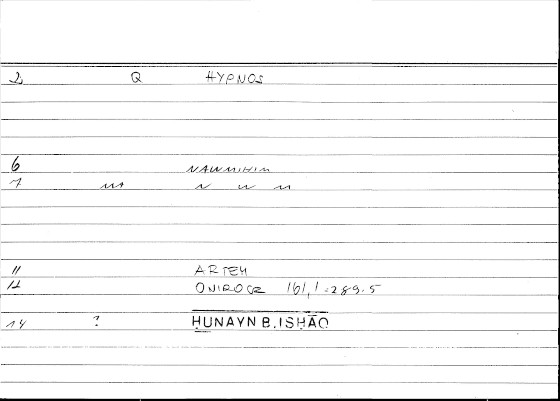 2 Q HYPNOS
6 NAWMIHIM
7 MA N W M
11 ARTEM
12 ONIROCR 161,1 = 289.5
14 ? ḤUNAYN B. ISḤĀQ